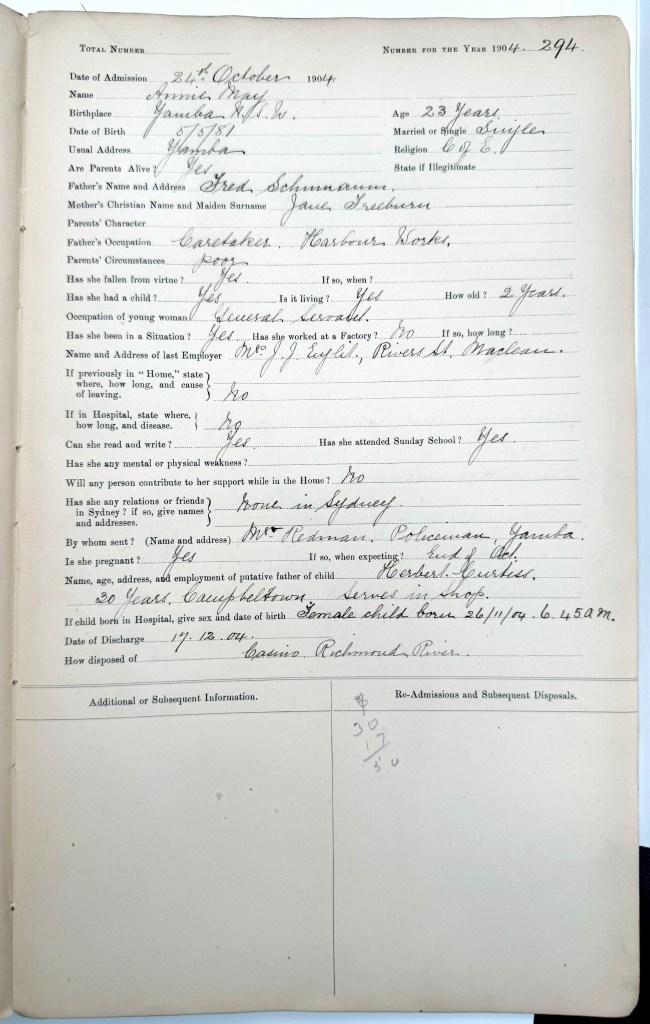 TOTAL NUMBER NUMBER FOR THE YEAR 1904. 294.
Date of Admission 24th October 1904
Name Annie May
Birthplace Yamba N.S.W. Age 23 Years
Date of Birth 5/5/81 Married or Single Single
Usual Address Yamba Religion C of E.
Are Parents Alive? Yes State if Illegitimate
Father's Name and Address Fred Schumann.
Mother's Christian Name and Maiden Surname Jane Freeburn
Parents' Character
Father's Occupation Caretaker. Harbour Works.
Parents' Circumstances poor
Has she fallen from virtue? Yes. If so, when?
Has she had a child? Yes Is it living? Yes How old? 2 Years.
Occupation of young woman General Servant.
Has she been in a Situation? Yes Has she worked at a Factory? No If so, how long?
Name and Address of last Employer Mrs J. J. Rivers St. Maclean.
If previously in "Home," state
where, how long, and cause
of leaving. } No
If in Hospital, state where,
how long, and disease. } No
Can she read and write? Yes Has she attended Sunday School? Yes.
Has she any mental or physical weakness?
Will any person contribute to her support while in the Home? No
Has she any relations or friends
in Sydney? if so, give names
and addresses. } None in Sydney
By whom sent? (Name and address) Mr Redman. Policeman, Yamba.
Is she pregnant? Yes If so, when expecting? End of Oct.
Name, age, address, and employment of putative father of child Herbert Curtiss.
30 Years. Campbeltown Serves in Shop.
If child born in Hospital, give sex and date of birth Female child born 26/11/04. 6.45 a.m.
Date of Discharge 17.12.04.
How disposed of Casino. Richmond River.
Additional or Subsequent Information. Re-Admissions and Subsequent Disposals.
30
17